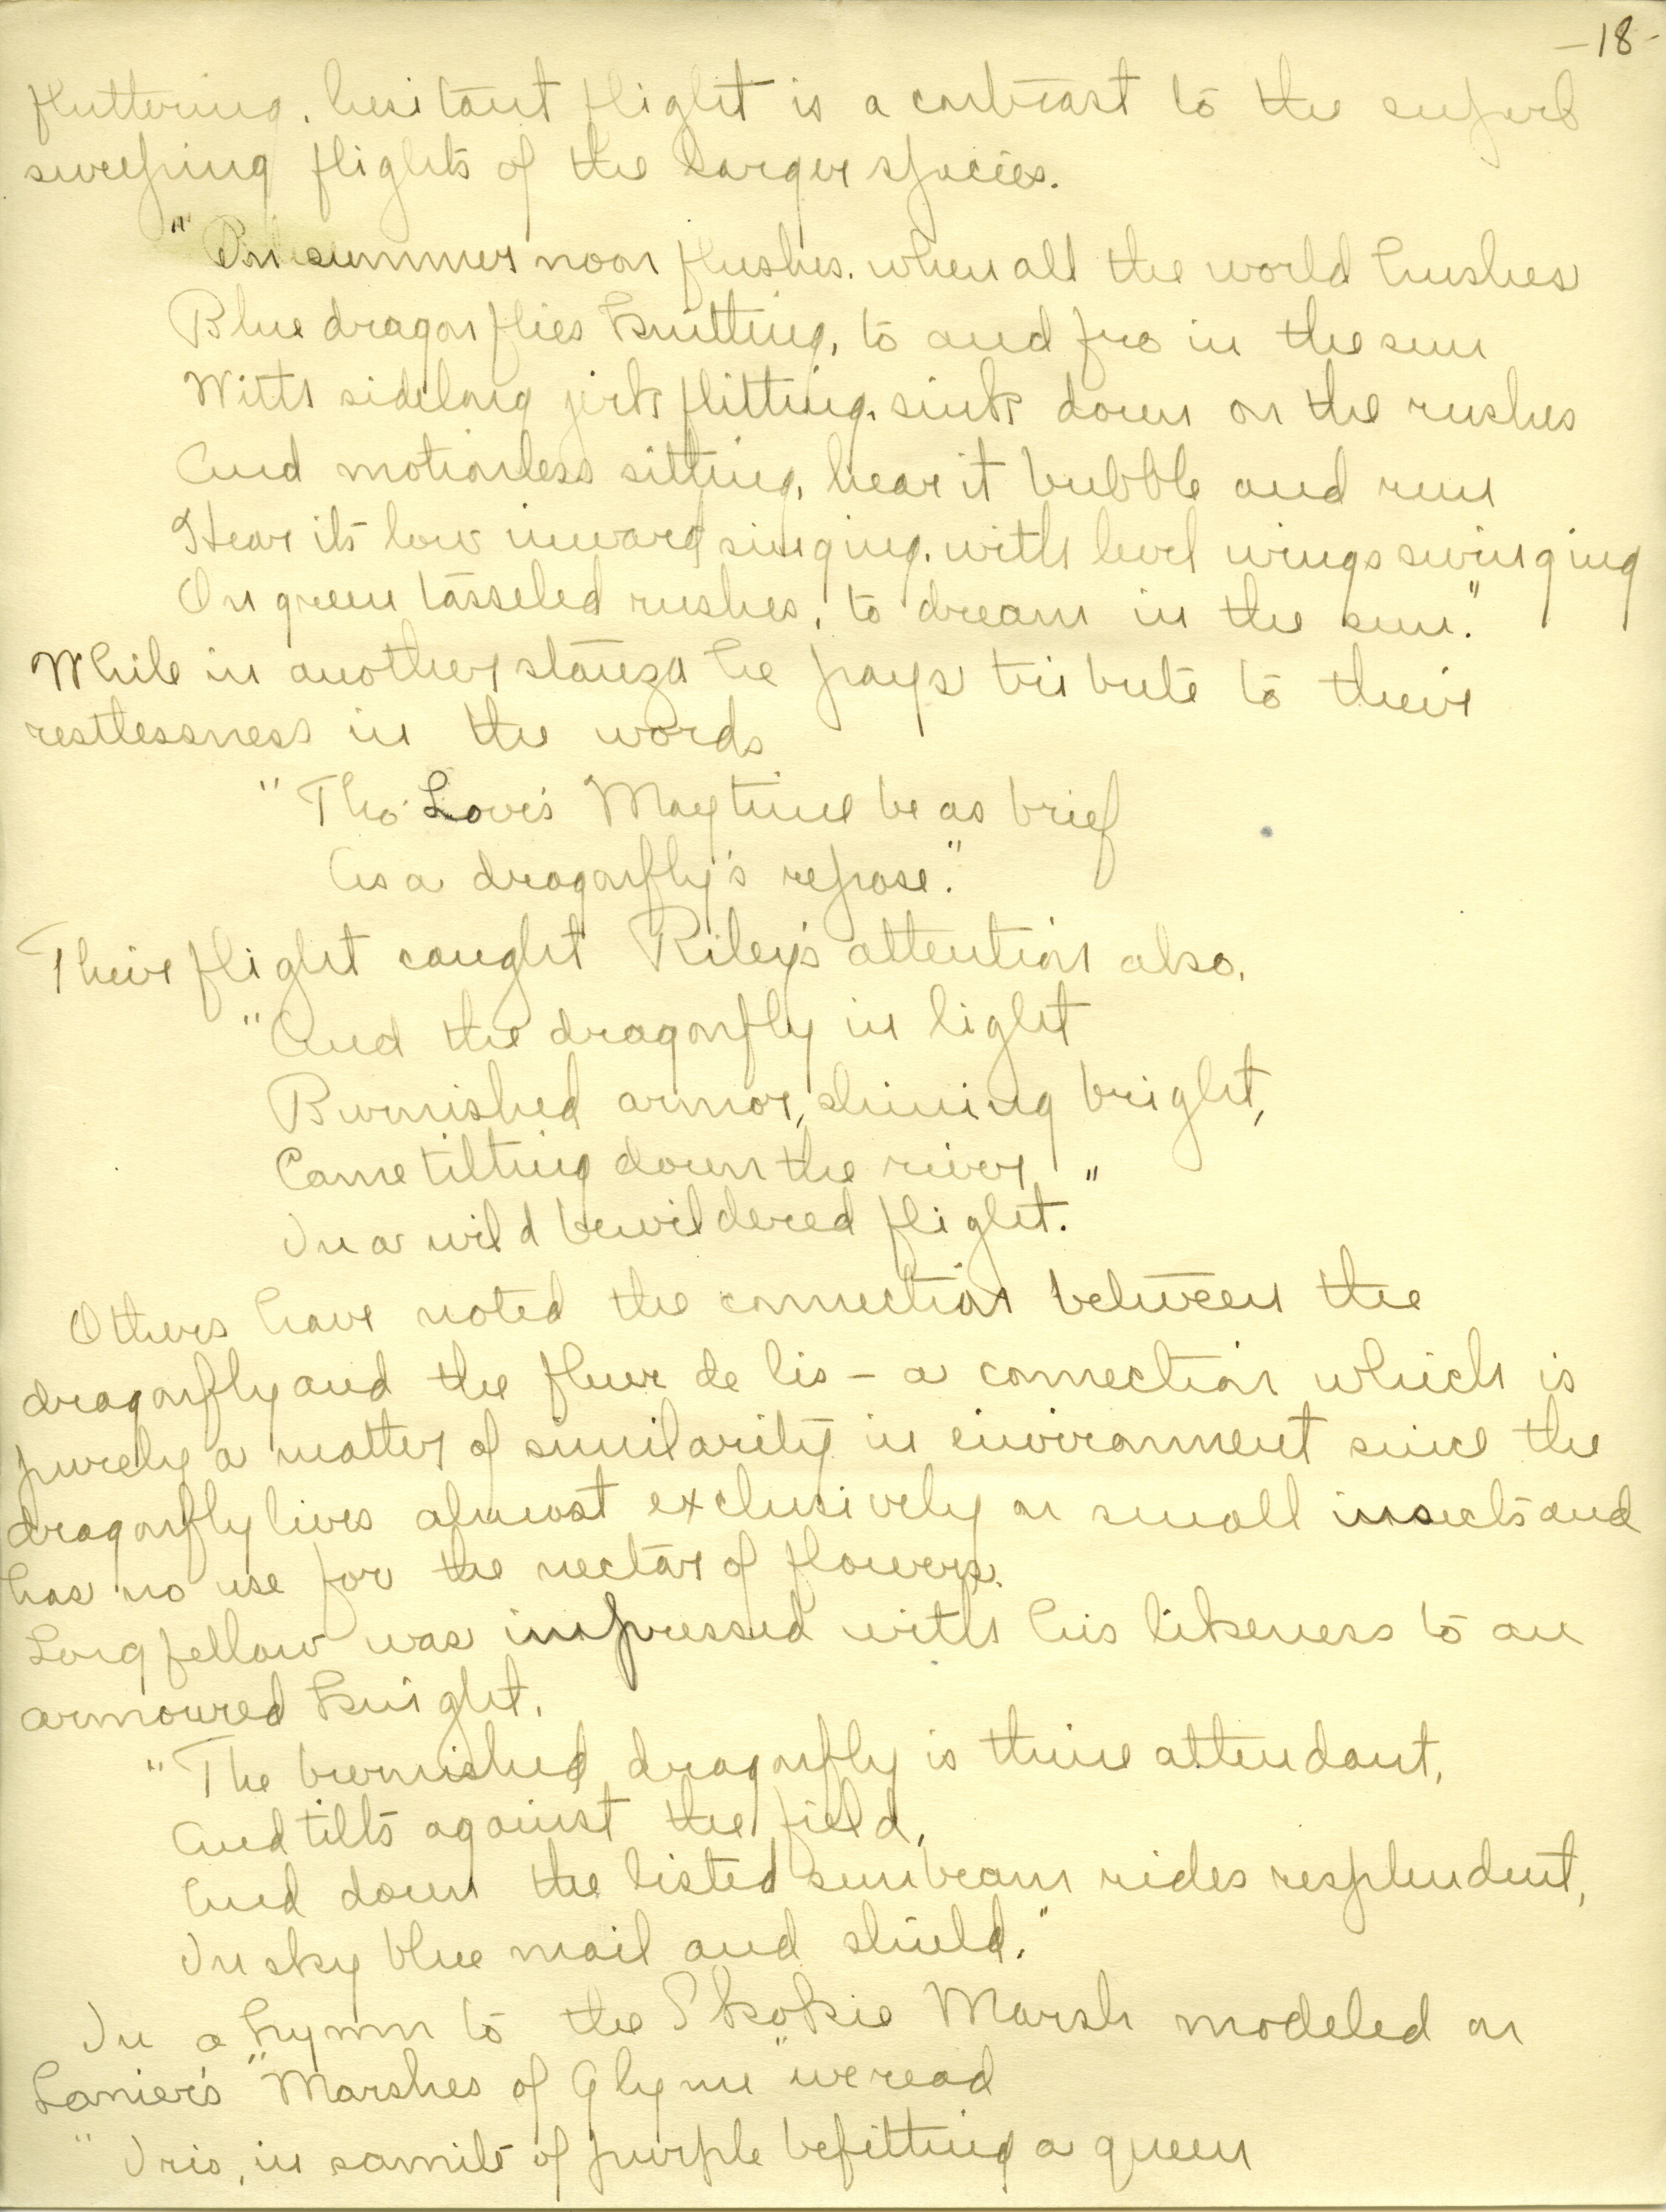 -18-
fluttering, hesitant flight is a contrast to the superb
sweeping flights of the larger species.
"In summer noon flushes, when all the world hushes
Blue dragonflies knitting, to and fro in the sun
With sidelong jerk flitting, sink down on the rushes
And motionless sitting, hear it bubble and run
Hear its low inward singing, with level wings swinging
On green tasseled rushes, to dream in the sun."
While in another stanza he pays tribute to their
restlessness in the words
"Tho' Love's Maytime be as brief
As a dragonfly's repose."
Their flight caught Riley's attention also.
"And the dragonfly in light
Burnished armor, shining bright,
Came tilting down the river
In a wild bewildered flight."
Others have noted the connection between the
dragonfly and the fleur de lis - a connection which is
purely a matter of similarity in environment since the
dragonfly lives almost exclusively on small insects and
has no use for the nectar of flowers.
Longfellow was impressed with his likeness to an
armoured knight.
"The burnished dragonfly is thine attendant,
And tilts against the field,
And down the listed sunbeam rides resplendent,
In sky blue mail and shield."
In a hymn to the Skokie Marsh modeled on
Lanier's "Marshes of Glynn" we read
"Iris, in samite of purple befitting a queen